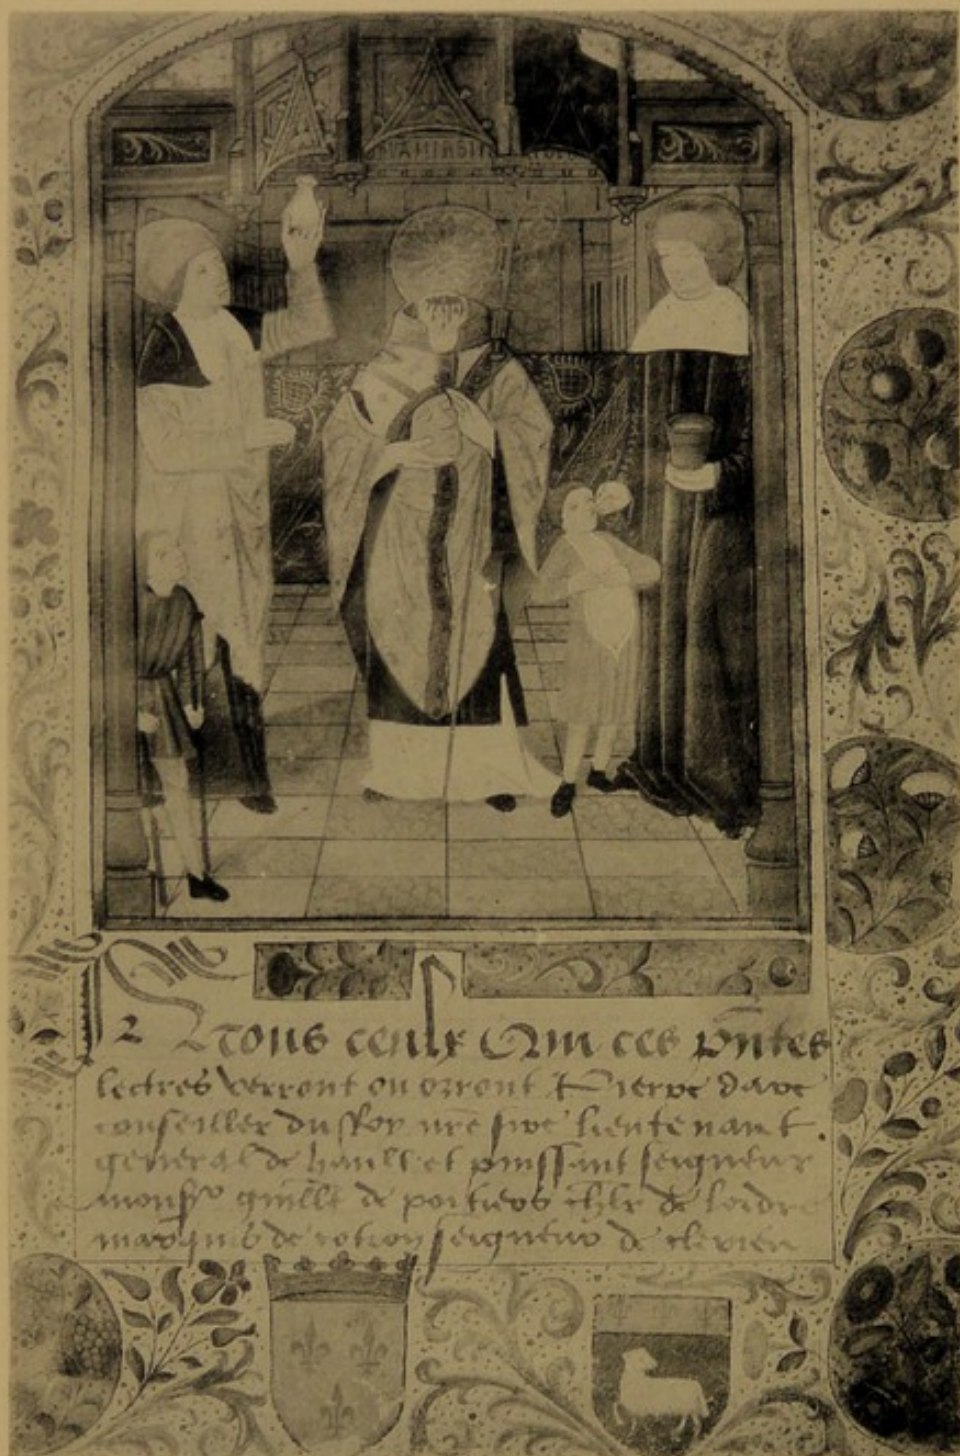 A tous ceulx Qui ces pñtes
lectres verront ou orront Pierre dave
conseiller du Roy nrẽ sire lieutenant
general de hault et puissant seigneur
monsr guille de poitiers chlr de lordre
marquis de cotron seigneur de clerieu